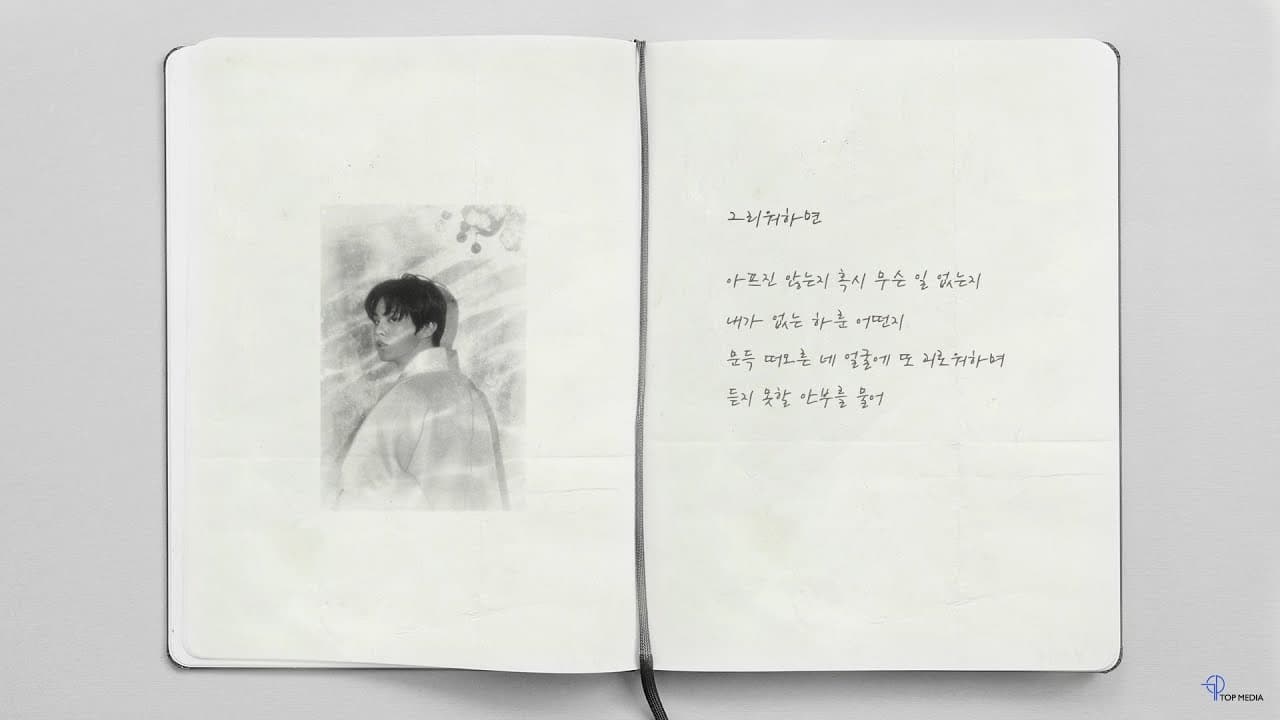 그리워하면
아프진 않는지 혹시 무슨 일 없는지
내가 없는 하룬 어떤지
문득 떠오른 네 얼굴에 또 괴로워하며
듣지 못할 안부를 물어
TOP MEDIA